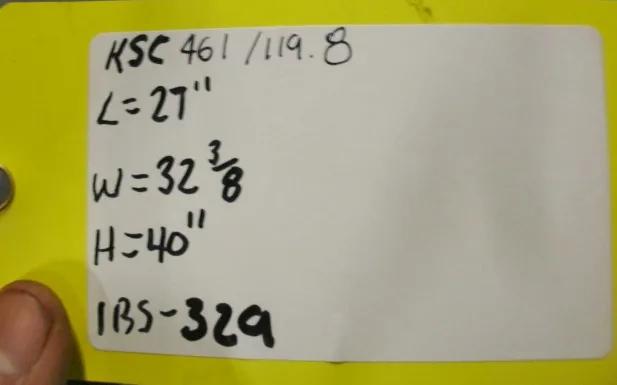 KSC 461/119.8
L=27"
W=32 3/8
H=40"
IBS-329